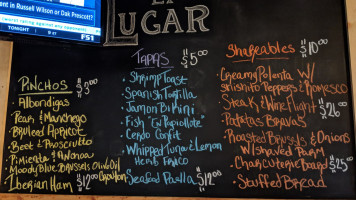 ent in Russell Wilson or Dak Prescott?
TONIGHT
PS1
EL
LUGAR
PINCHOS $3.00
Albondigas
Pear & Manchego
Bruleed Apricot
Beet & Proscuitto
Pimienta & Anchoa
Moody Blue, Brussels, Olive Oil
Iberian Ham $12.00
TAPAS $5.00
Shrimp Toast
Spanish Tortilla
Jamon Bikini
Fish "En Papiollote"
Cerdo Confit
Whipped Tuna & Lemon
Herb Fraco
Seafood Paella $12.00
Shareables $10.00
Creamy Polenta w/
Shishito Peppers & Romesco
Steak & Wine Flight $26.00
Patatas Bravas
Roasted Brussels & Onions
w/ Shaved Parm
Charcuterie Board $25.00
Stuffed Bread